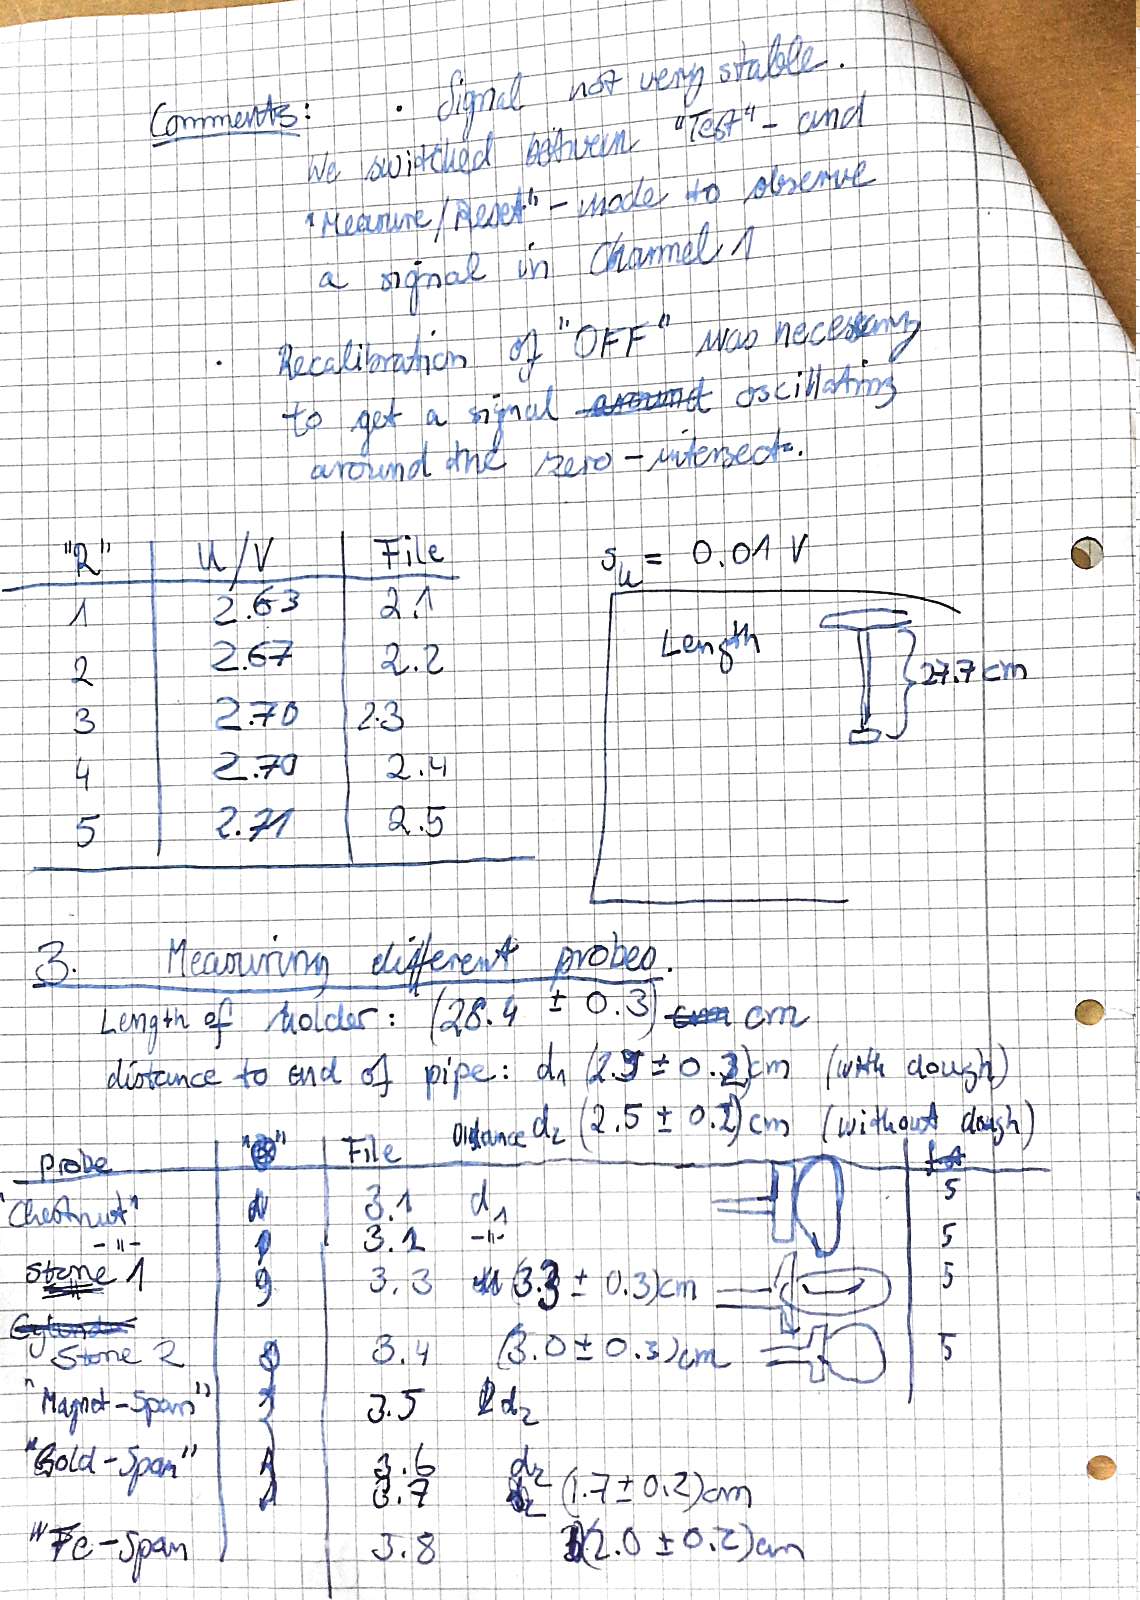 Comments: • Signal not very stable.
We switched between "Test"- and
"Measure/Reset"-mode to observe
a signal in Channel 1
• Recalibration of "OFF" was necessary
to get a signal around oscillating
around the zero-intersect.
"R" U/V File
1 2.63 2.1
2 2.67 2.2
3 2.70 2.3
4 2.70 2.4
5 2.71 2.5
s_u = 0.01 V
Length
27.7 cm
3. Measuring different probes.
Length of holder: (28.4 ± 0.3) cm cm
distance to end of pipe: d₁ (2.9 ± 0.2) cm (with dough)
Distance d₂ (2.5 ± 0.2) cm (without dough)
probe File
"Chestnut" 3.1 d₁ 5
-"- 3.2 -"- 5
stone 1 3.3 (3.3 ± 0.3) cm 5
Cylinder
Stone 2 3.4 (3.0 ± 0.3) cm 5
"Magnet-Span" 3.5 d₂
"Gold-Span" 3.6 d₂
3.7 (1.7 ± 0.2) cm
"Fe-Span 3.8 (2.0 ± 0.2) cm